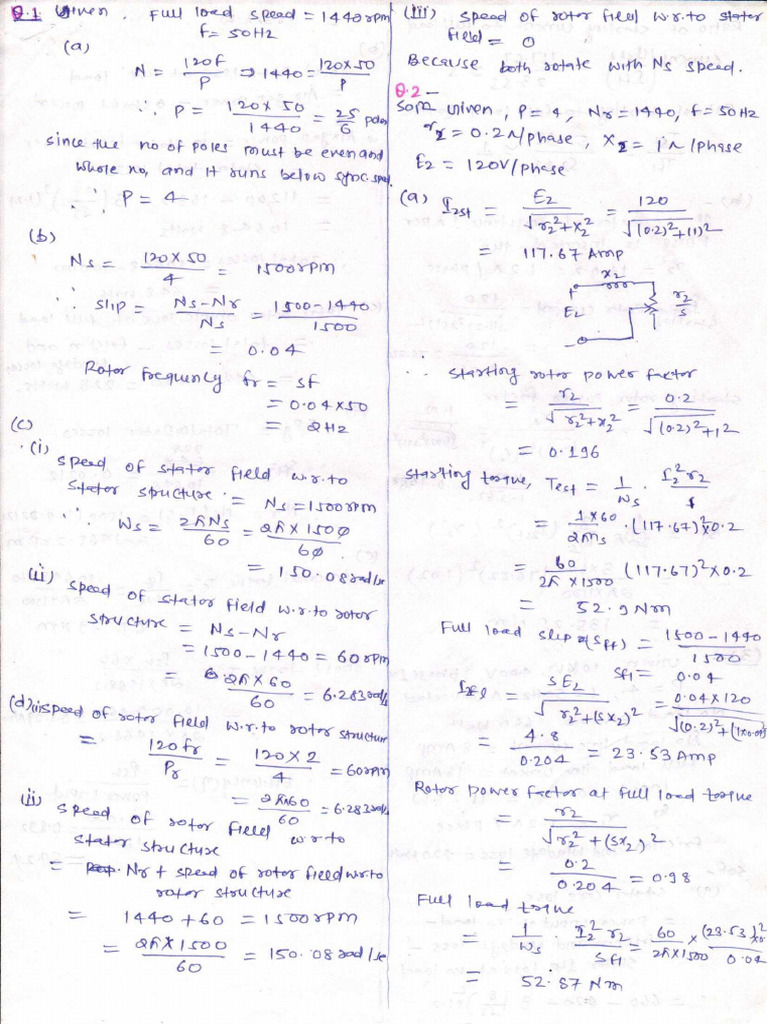 Q.1 Given. Full load speed = 1440rpm
f = 50Hz
(a)
N = 120f/P ⇒ 1440 = 120×50/P
∴ P = 120×50/1440 = 25/6 poles
since the no of poles must be even and
whole no, and it runs below sync. speed
∴ P = 4
(b)
Ns = 120×50/4 = 1500rpm
∴ slip = Ns-Nr/Ns = 1500-1440/1500
= 0.04
Rotor frequency fr = sf
= 0.04×50
= 2Hz
(c)
(i) speed of stator field w.r.to
stator structure = Ns = 1500rpm
∴ Ws = 2πNs/60 = 2π×1500/60
= 150.08rad/se
(ii) speed of stator field w.r.to rotor
structure = Ns-Nr
= 1500-1440 = 60rpm
= 2π×60/60 = 6.283rad/s
(d)(i)speed of rotor field w.r.to rotor structure
= 120fr/Pr = 120×2/4 = 60rpm
= 2π60/60 = 6.283rad/s
(ii) speed of rotor field w.r.to
stator structure
= Nr + speed of rotor field w.r.to
rotor structure
= 1440+60 = 1500rpm
= 2π×1500/60 = 150.08rad/se
(iii) speed of rotor field w.r.to stator
field = 0
Because both rotate with Ns speed.
Q.2-
Soln Given, P=4, Nr=1440, f=50Hz
r2 = 0.2Ω/phase, X2 = 1Ω/phase
E2 = 120V/phase
(a) I2st = E2/√r2²+x2² = 120/√(0.2)²+(1)²
= 117.67 Amp
x2
E2
r2/s
∴ starting rotor power factor
= r2/√r2²+x2² = 0.2/√(0.2)²+1²
= 0.196
starting torque, Test = 1/Ws . I2²r2/1
= 1×60/2πNs .(117.67)²×0.2
= 60/2π×1500 (117.67)²×0.2
= 52.9Nm
Full load slip (Sfl) = 1500-1440/1500
Sfl = 0.04
I2fl = SE2/√r2²+(Sx2)² = 0.04×120/√(0.2)²+(1×0.04)²
= 4.8/0.204 = 23.53Amp
Rotor power factor at full load torque
= r2/√r2²+(Sx2)²
= 0.2/0.204 = 0.98
Full load torque
= 1/Ws . I2²r2/Sfl = 60/2π×1500 × (23.53)²×0./0.04
= 52.87Nm